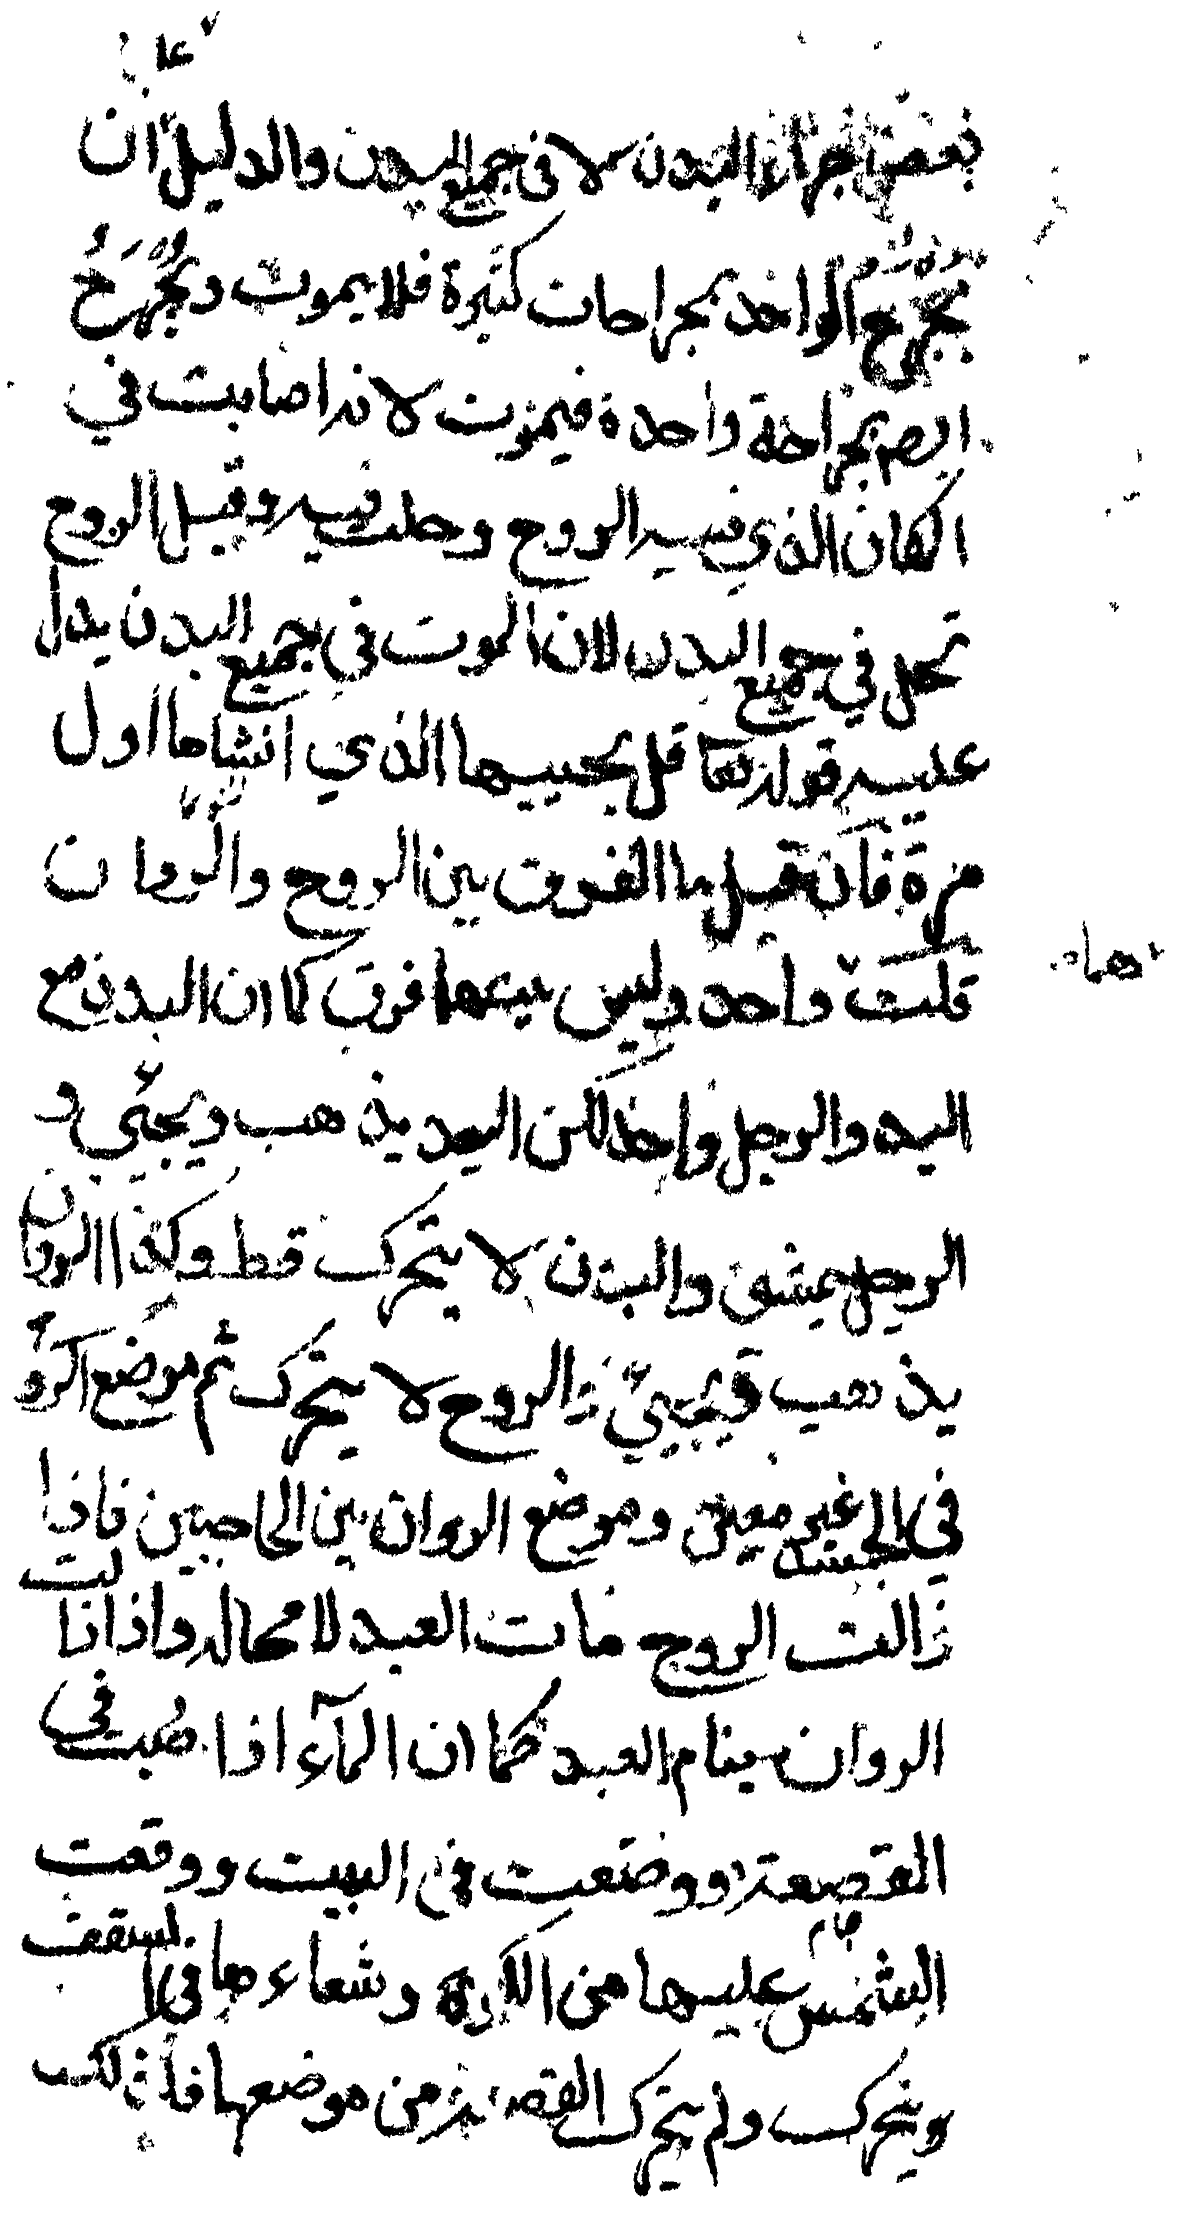 على
بعض اجزاء البدن لا فى جميع البدن والدليل ان
يجرح الواحد بجراحات كثيرة فلا يموت ويُجرَحُ
بجراحة واحدة فيموت لانه اصابت في
المكان الذي فيه الروح وحلت فيه وقيل الروح
تحل في جميع البدن لان الموت في جميع البدن يدل
عليه قوله تعا قل يحييها الذي انشاها اول
مرة فان قيل ما الفرق بين الروح والروان
قلت واحد وليس بينهما فرق كما ان البدن مع
اليد والرجل واحد لكن اليد يذهب ويجئي و
الرجل يمشى والبدن لا يتحرك قط وكذا الروان
يذهب ويجيئ والروح لا يتحرك ثم موضع الرو
فى الجسد غير معين وموضع الروان بين الحاجبين فاذا
زالت الروح مات العبد لا محاله واذا نا لت
الروان ينام العبد كما ان المآء اذا صب فى
القصعة ووضعت فى البيت ووقعت
الشمس عليها من الكوة وشعاءها فى السقف
ويتحرك ولم يتحرك القصعة من موضعها فكذلك